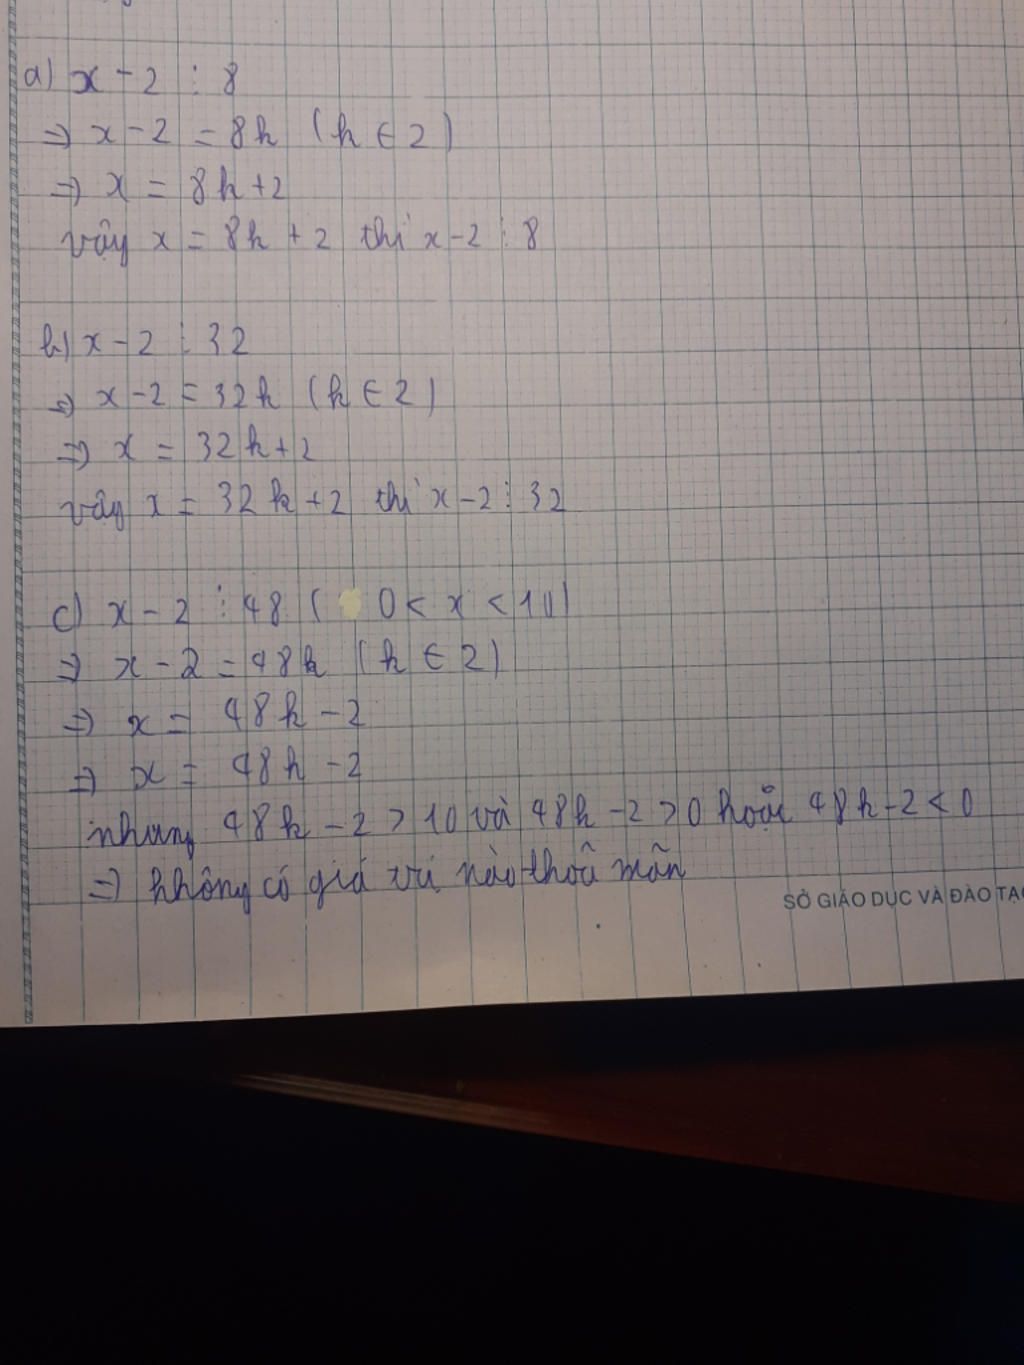 a) x - 2 ⋮ 8
⇒ x - 2 = 8k (k ∈ Z)
⇒ x = 8k + 2
vậy x = 8k + 2 thì x - 2 ⋮ 8
b) x - 2 ⋮ 32
⇒ x - 2 = 32k (k ∈ Z)
⇒ x = 32k + 2
vậy x = 32k + 2 thì x - 2 ⋮ 32
c) x - 2 ⋮ 48 ( 0 < x < 10)
⇒ x - 2 = 48k (k ∈ Z)
⇒ x = 48k - 2
⇒ x = 48k - 2
nhưng 48k - 2 > 10 và 48k - 2 > 0 hoặc 48k - 2 < 0
⇒ không có giá trị nào thoã mãn
SỞ GIÁO DỤC VÀ ĐÀO TẠO